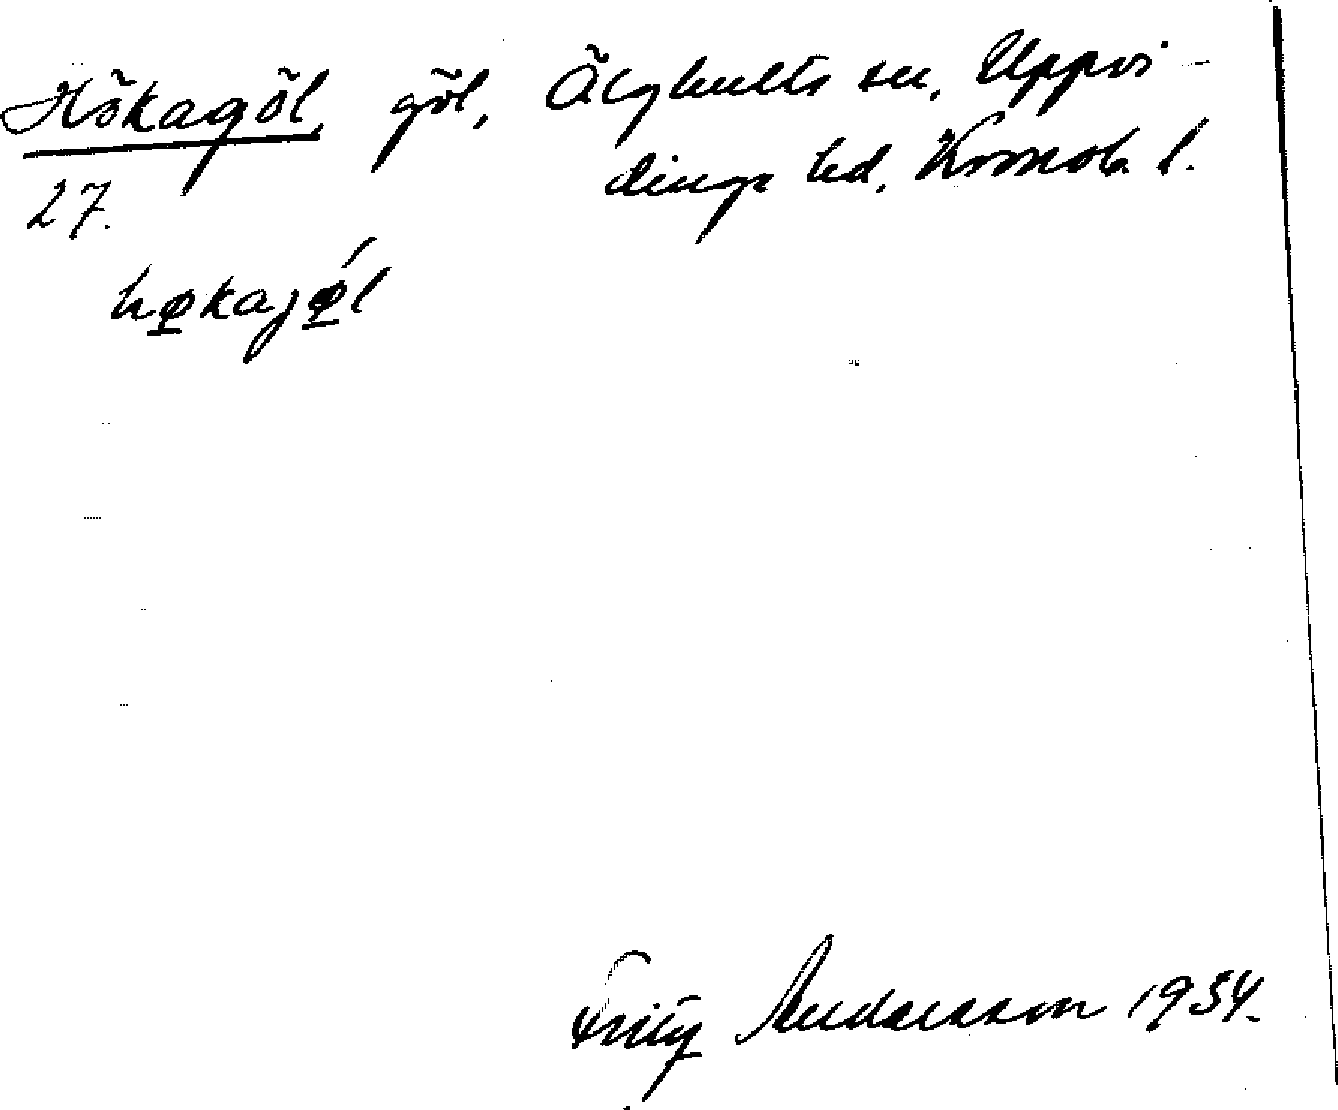 Hökagöl, göl, Älghults sn, Uppvi-
dinge hd, Kronob. l.
27.
hø̱kajǿ̱l
Fritz Andersson 1934.